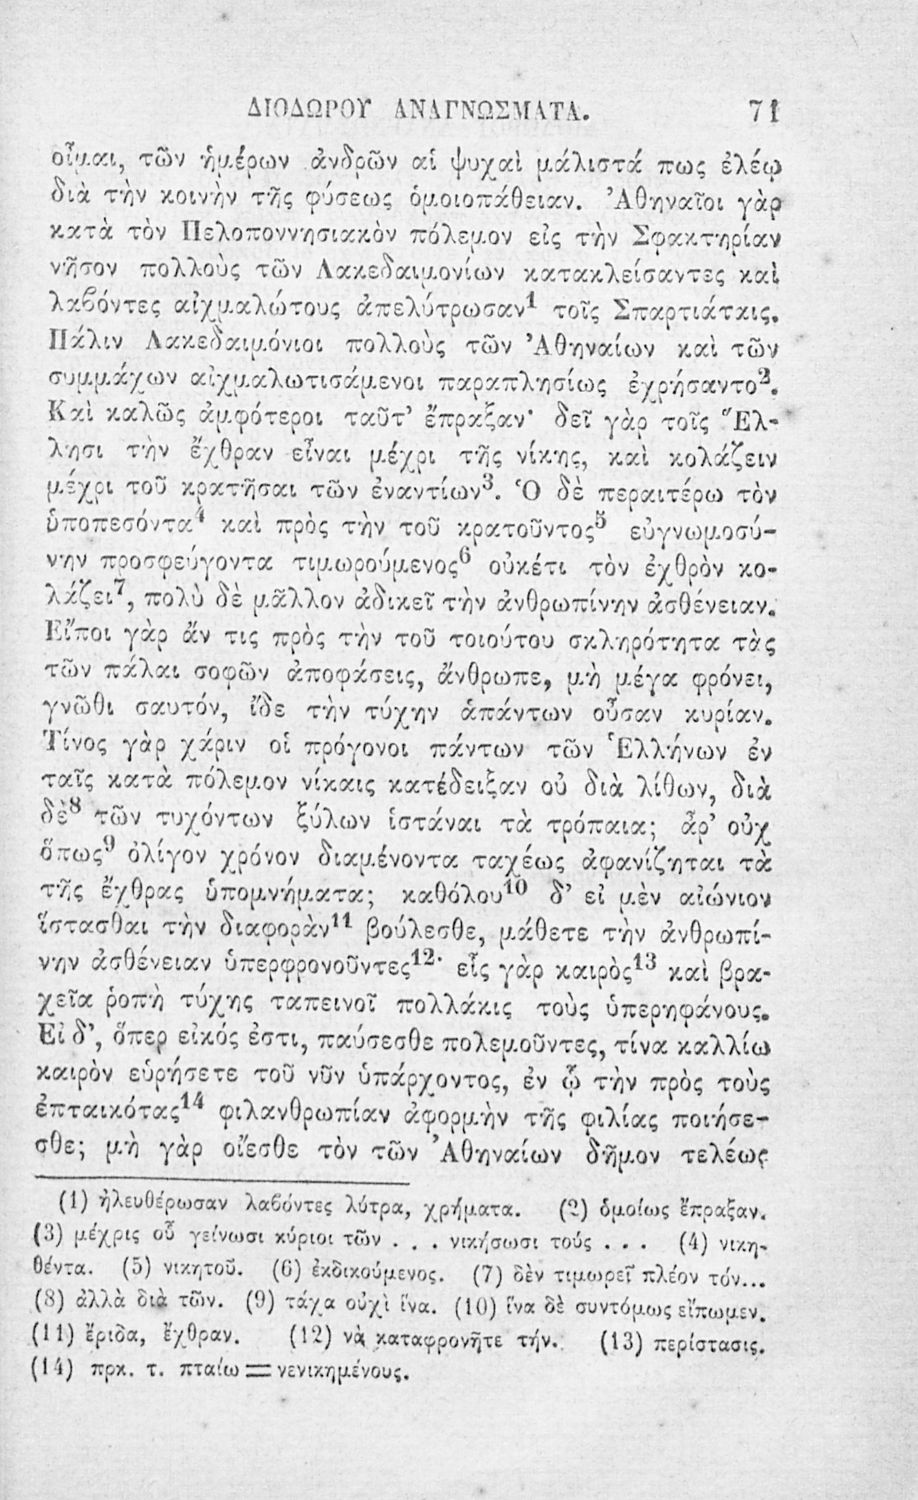 ΔΙΟΔΩΡΟΥ ΑΝΑΓΝΩΣΜΑΤΑ. 71
οἶμαι, τῶν ἡμέρων ἀνδρῶν αἱ ψυχαὶ μάλιστά πως ἐλέῳ
διὰ τὴν κοινὴν τῆς φύσεως ὁμοιοπάθειαν. Ἀθηναῖοι γὰρ
κατὰ τὸν Πελοποννησιακὸν πόλεμον εἰς τὴν Σφακτηρίαν
νῆσον πολλοὺς τῶν Λακεδαιμονίων κατακλείσαντες καὶ
λαβόντες αἰχμαλώτους ἀπελύτρωσαν¹ τοῖς Σπαρτιάταις.
Πάλιν Λακεδαιμόνιοι πολλοὺς τῶν Ἀθηναίων καὶ τῶν
συμμάχων αἰχμαλωτισάμενοι παραπλησίως ἐχρήσαντο².
Καὶ καλῶς ἀμφότεροι ταῦτ’ ἔπραξαν· δεῖ γὰρ τοῖς Ἕλ-
λησι τὴν ἔχθραν εἶναι μέχρι τῆς νίκης, καὶ κολάζειν
μέχρι τοῦ κρατῆσαι τῶν ἐναντίων³. Ὁ δὲ περαιτέρω τὸν
ὑποπεσόντα⁴ καὶ πρὸς τὴν τοῦ κρατοῦντος⁵ εὐγνωμοσύ-
νην προσφεύγοντα τιμωρούμενος⁶ οὐκέτι τὸν ἐχθρὸν κο-
λάζει⁷, πολὺ δὲ μᾶλλον ἀδικεῖ τὴν ἀνθρωπίνην ἀσθένειαν.
Εἴποι γὰρ ἄν τις πρὸς τὴν τοῦ τοιούτου σκληρότητα τὰς
τῶν πάλαι σοφῶν ἀποφάσεις, ἄνθρωπε, μὴ μέγα φρόνει,
γνῶθι σαυτόν, ἴδε τὴν τύχην ἁπάντων οὖσαν κυρίαν.
Τίνος γὰρ χάριν οἱ πρόγονοι πάντων τῶν Ἑλλήνων ἐν
ταῖς κατὰ πόλεμον νίκαις κατέδειξαν οὐ διὰ λίθων, διὰ
δὲ⁸ τῶν τυχόντων ξύλων ἱστάναι τὰ τρόπαια; ἆρ’ οὐχ
ὅπως⁹ ὀλίγον χρόνον διαμένοντα ταχέως ἀφανίζηται τὰ
τῆς ἔχθρας ὑπομνήματα; καθόλου¹⁰ δ’ εἰ μὲν αἰώνιον
ἵστασθαι τὴν διαφορὰν¹¹ βούλεσθε, μάθετε τὴν ἀνθρωπί-
νην ἀσθένειαν ὑπερφρονοῦντες¹²· εἷς γὰρ καιρὸς¹³ καὶ βρα-
χεῖα ῥοπὴ τύχης ταπεινοῖ πολλάκις τοὺς ὑπερηφάνους.
Εἰ δ’, ὅπερ εἰκός ἐστι, παύσεσθε πολεμοῦντες, τίνα καλλίω
καιρὸν εὑρήσετε τοῦ νῦν ὑπάρχοντος, ἐν ᾧ τὴν πρὸς τοὺς
ἐπταικότας¹⁴ φιλανθρωπίαν ἀφορμὴν τῆς φιλίας ποιήσε-
σθε; μὴ γὰρ οἴεσθε τὸν τῶν Ἀθηναίων δῆμον τελέως
(1) ἠλευθέρωσαν λαβόντες λύτρα, χρήματα. (2) ὁμοίως ἔπραξαν.
(3) μέχρις οὗ γείνωσι κύριοι τῶν . . . νικήσωσι τούς . . . (4) νικη-
θέντα. (5) νικητοῦ. (6) ἐκδικούμενος. (7) δὲν τιμωρεῖ πλέον τόν...
(8) ἀλλὰ διὰ τῶν. (9) τάχα οὐχὶ ἵνα. (10) ἵνα δὲ συντόμως εἴπωμεν.
(11) ἔριδα, ἔχθραν. (12) νὰ καταφρονῆτε τήν. (13) περίστασις.
(14) πρκ. τ. πταίω = νενικημένους.